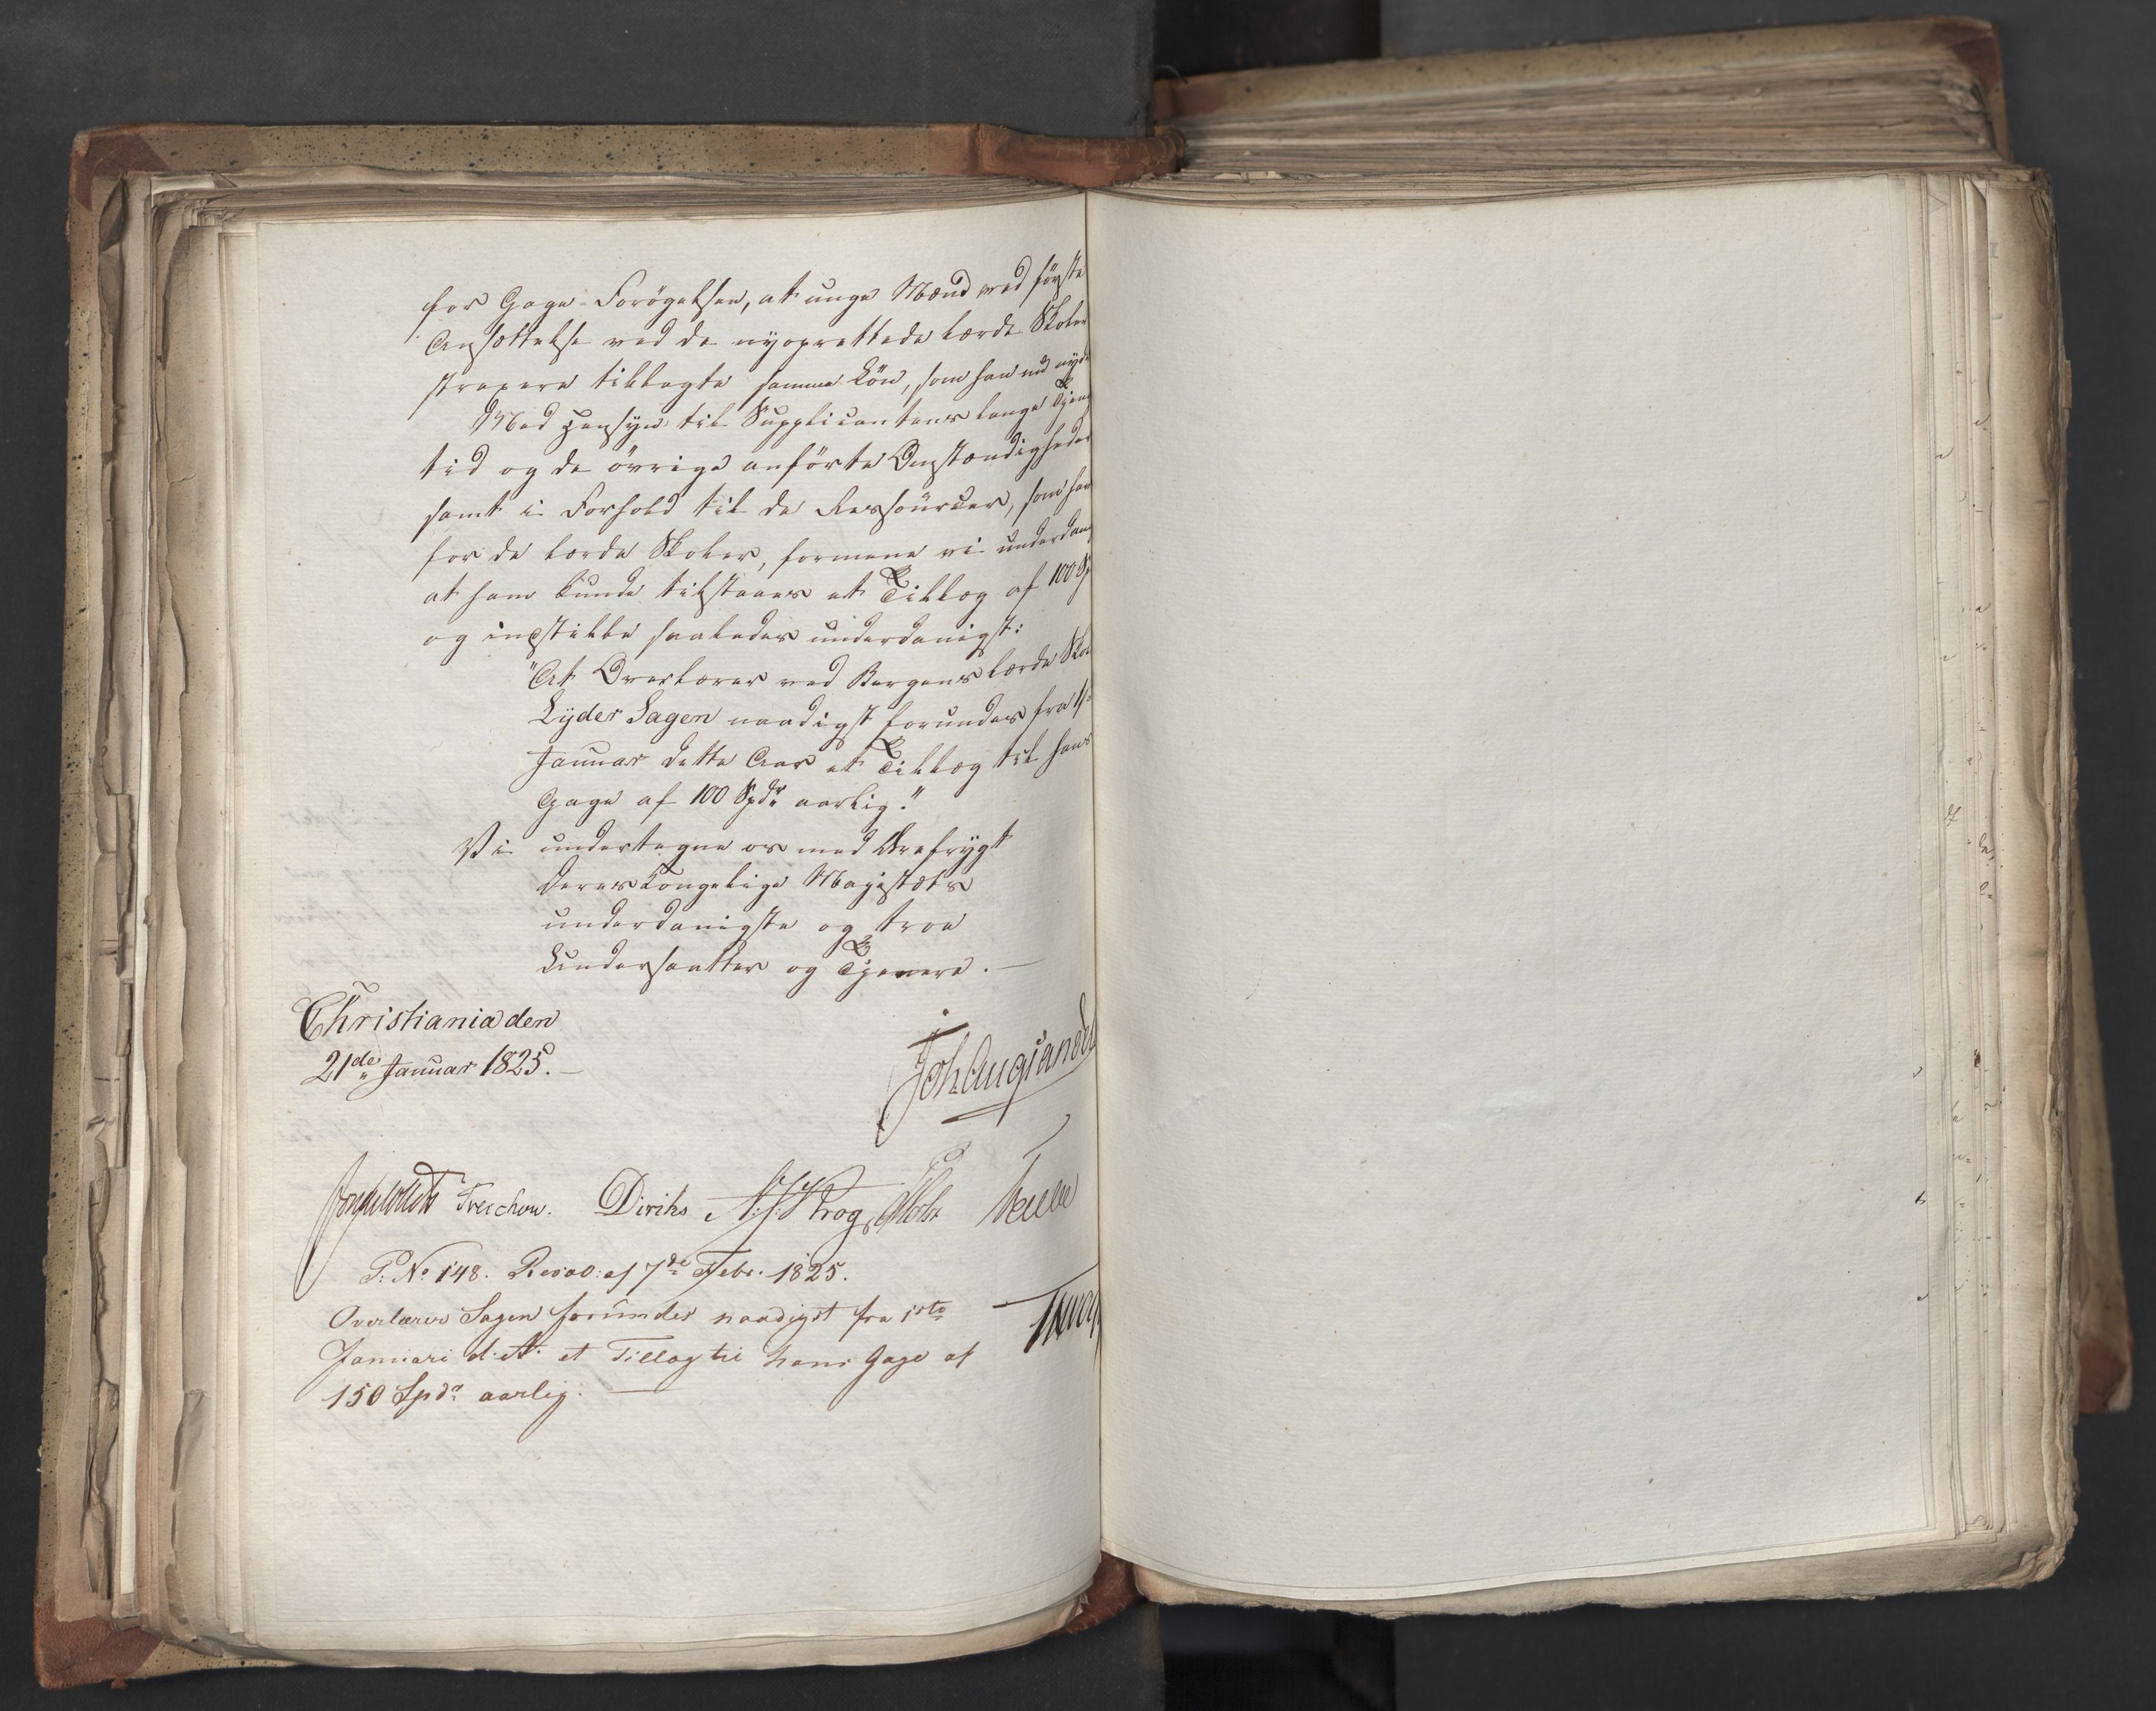 for Gage-Forögelsen, at unge Mænd ved förste
Ansættelse ved de nyoprettede lærde Skoler
strax ere tillagte samme Lön, som han nu nyde
Med Hensyn til Supplicantens lange Tjene
tid og de övrige anförte Omstændigheder
samt i Forhold til de Ressourcer, som haves
for de lærde Skoler, formene vi underdan
at ham kunde tilstaaes et Tillæg af 100 Sp
og instille saaledes underdanigst:
"At Overlærer ved Bergens lærde Skole
Lyder Sagen naadigst forundes fra 1ste
Januar dette Aar et Tillæg til hans
Gage af 100 Spdr. aarlig."
Vi undertegne os med Ærefrygt
Deres Kongelige Majestæts
underdanigste og troe
Undersaatter og Tjenere. —
Christiania den
21de Januar 1825. —
Joh Aug Sandels
Jonas Collett Treschow. Diriks A. J. Krog Holst
P. No 148. Resol: af 7de Febr. 1825.
Overlærer Sagen forundes naadigst fra 1ste
Januari d. A. et Tillæg til hans Gage af
150 Spdr. aarlig. —